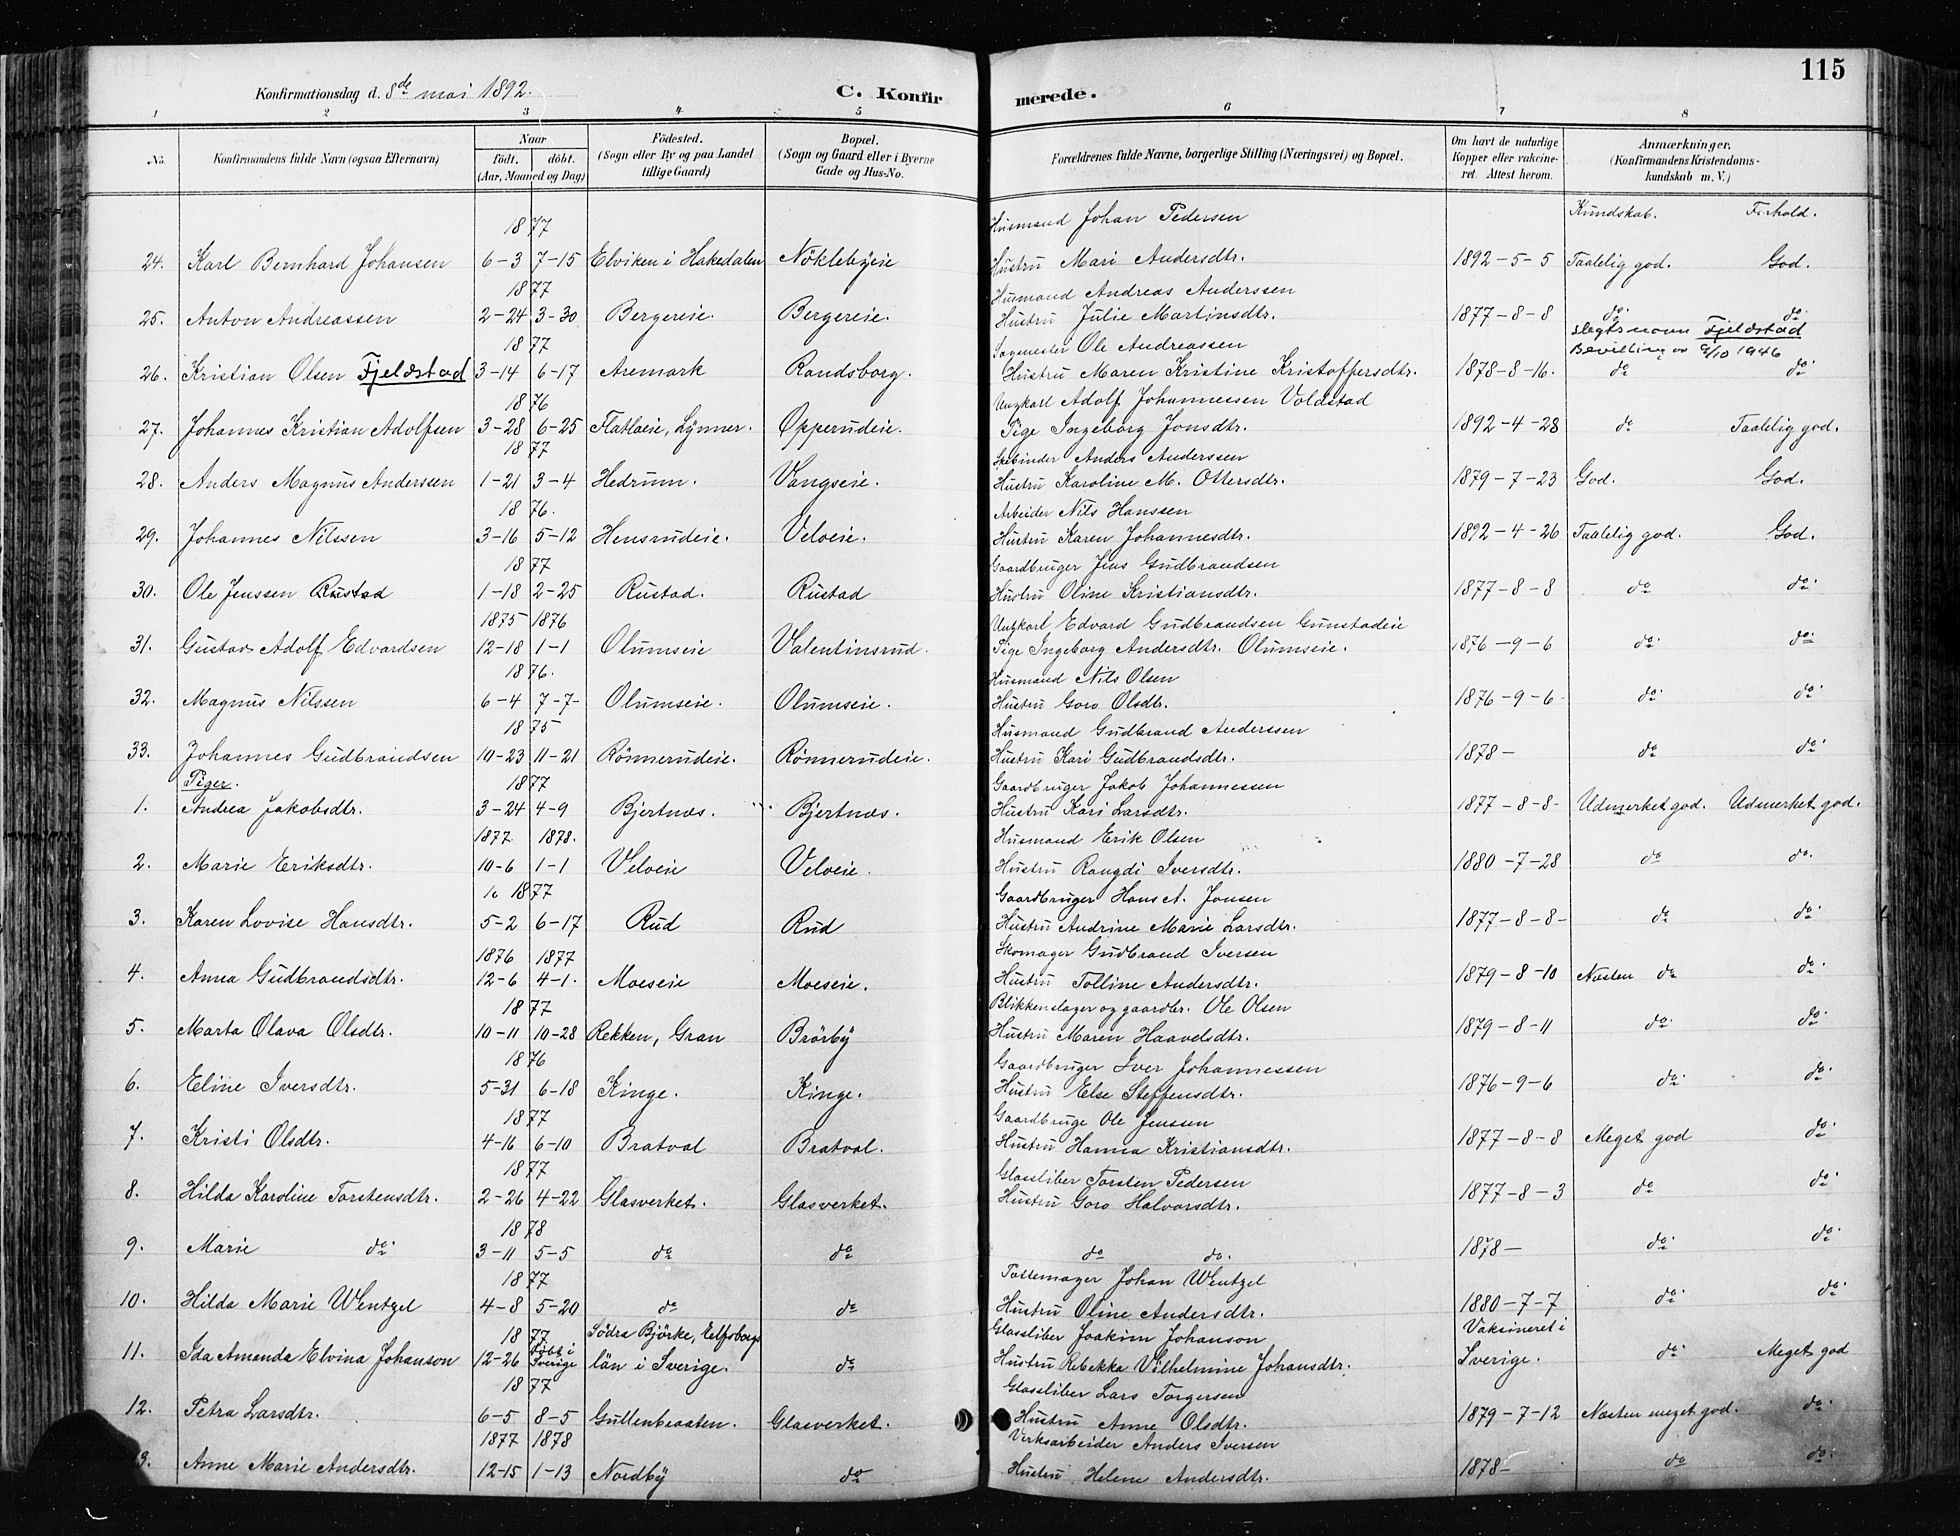 115
Konfirmationsdag d. 8de mai 1892.
C. Konfirmerede.
1 2 3 4 5 6 7 8
No. Konfirmandens fulde Navn (ogsaa Efternavn) Naar født. døbt. (Aar, Maaned og Dag) Födested. (Sogn eller By og paa Landet tillige Gaard) Bopæl. (Sogn og Gaard eller i Byerne Gade og Hus-No. Forældrenes fulde Navne, borgerlige Stilling (Næringsvei) og Bopæl. Om havt de naturlige Kopper eller vakcineret. Attest herom. Anmærkninger. (Konfirmandens Kristendomskundskab m. V.)
Kundskab. Forhold.
1877 Husmand Johan Pedersen
24. Karl Bernhard Johansen 6-3 7-15 Elviken i Hakedalen Nöklebyeie Hustru Mari Andersdtr. 1892-5-5 Taalelig god. God.
1877 Husmand Andreas Anderssen
25. Anton Andreassen 2-24 3-30 Bergereie. Bergereie. Hustru Julie Martinsdtr. 1877-8-8 do. do.
1877 Sagmester Ole Andreassen slegtsnavn Fjeldstad Bevilling av 9/10 1946
26. Kristian Olsen Fjeldstad 3-14 6-17 Aremark Randsborg. Hustru Maren Kristine Kristoffersdtr. 1878-8-16. do do
1876 Ungkarl Adolf Johannessen Voldstad
27. Johannes Kristian Adolfsen 3-28 6-25 Flatlaeie, Lynner. Opperudeie. Pige Ingeborg Jonsdtr. 1892-4-28 do Taalelig god.
1877 Skibinder Anders Anderssen
28. Anders Magnus Anderssen 1-21 3-4 Hedrum. Vangseie. Hustru Karoline M. Ottersdtr. 1879-7-23 God. God.
1876. Arbeider Nils Hanssen
29. Johannes Nilssen 3-16 5-12 Hensrudeie. Velveie. Hustru Karen Johannesdtr. 1892-4-26 Taalelig god. God.
1877 Gaardbruger Jens Gudbrandsen
30. Ole Jenssen Rustad 1-18 2-25 Rustad. Rustad Hustru Oline Kristiansdtr. 1877-8-8 do do.
1875 1876 Ungkarl Edvard Gudbrandsen Gunstadeie
31. Gustav Adolf Edvardsen 12-18 1-1 Olumseie Valentinsrud. Pige Ingeborg Andersdtr. Olumseie. 1876-9-6 do. do.
1876. Husmand Nils Olsen
32. Magnus Nilssen 6-4 7-7 Olumseie. Olumseie. Hustru Goro Olsdtr. 1876-9-6 do. do.
1875 Husmand Gudbrand Anderssen
33. Johannes Gudbrandsen 10-23 11-21 Rönnerudeie. Rönnerudeie. Hustru Kari Gudbrandsdtr. 1878- do do.
Piger. 1877 Gaardbruger Jakob Johannessen
1. Andrea Jakobsdtr. 3-24 4-9 Bjertnæs. Bjertnæs. Hustru Kari Larsdtr. 1877-8-8- Udmerket god. Udmerket god.
1877 1878. Husmand Erik Olsen
2. Marie Eriksdtr. 10-6 1-1 Velveie Velveie. Hustru Rangdi Iversdtr. 1880-7-28 do do.
1877 Gaardbruger Hans A. Jonsen
3. Karen Lovise Hansdtr. 5-2 6-17 Rud Rud Hustru Andrine Marie Larsdtr. 1877-8-8- do do.
1876 1877 Skomager Gudbrand Iversen
4. Anna Gudbrandsdtr. 12-6 4-1. Moeseie Moeseie. Hustru Tolline Andersdtr. 1879-8-10 Næsten do do.
1877 Blikkenslager og gaardbr. Ole Olsen
5. Marta Olava Olsdtr. 10-11 10-28 Rekken, Gran Brörby Hustru Maren Haavelsdtr. 1879-8-11 do. do.
1876 Gaardbruger Iver Johannessen
6. Eline Iversdtr. 5-31 6-18 Kinge. Kinge. Hustru Else Steffensdtr. 1876-9-6 do. do.
1877 Gaardbruge Ole Jenssen
7. Kristi Olsdtr. 4-16 6-10 Bratval Bratval. Hustru Hanna Kristiansdtr. 1877-8-8 Meget god do.
1877 Glassliber Torsten Pedersen
8. Hilda Karoline Torstensdtr. 2-26 4-22 Glasverket. Glasverket. Hustru Goro Halvorsdtr. 1877-8-3 do. do.
1878
9. Marie do. 3-11 5-5 do do do do. 1878- do. do.
1877 Pottemager Johan Wentzel
10. Hilda Marie Wentzel 4-8 5-20 do do Hustru Oline Andersdtr. 1880-7-7 do. do.
1877 Södra Björke, Elfsborgs Glassliber Joakim Johanson Vaksineret i
11. Ida Amanda Elvina Johanson 12-26 Döbt i Sverige län i Sverige. do Hustru Rebekka Vilhelmine Johansdtr. Sverige. do. Meget god
1877 Glassliber Lars Torgersen
12. Petra Larsdtr. 6-5 8-5 Gullenbraaten. Glasverket. Hustru Anne Olsdtr. 1879-7-12 Næsten meget god. do.
1877 1878 Verksarbeider Anders Iversen
3. Anne Marie Andersdtr. 12-15 1-13 Nordby do Hustru Helene Andersdtr. 1878- do do.